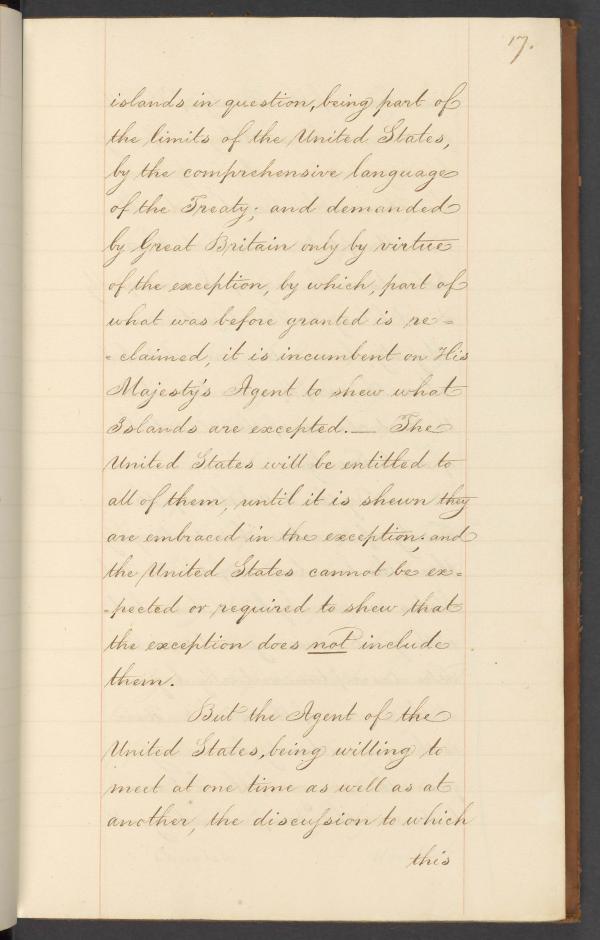 17.
islands in question, being part of
the limits of the United States,
by the comprehensive language
of the Treaty; and demanded
by Great Britain only by virtue
of the exception, by which, part of
what was before granted is re=
=claimed, it is incumbent on His
Majesty's Agent to shew what
Islands are excepted.— The
United States will be entitled to
all of them, until it is shewn they
are embraced in the exception; and
the United States cannot be ex=
=pected or required to shew that
the exception does not include
them.
But the Agent of the
United States, being willing to
meet at one time as well as at
another, the discuſsion to which
this